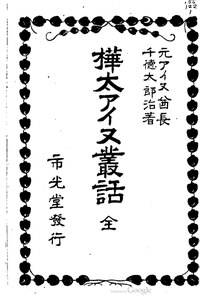 元アイヌ酋長
千徳太郎治著
樺太アイヌ叢話
全
市光堂發行
Google